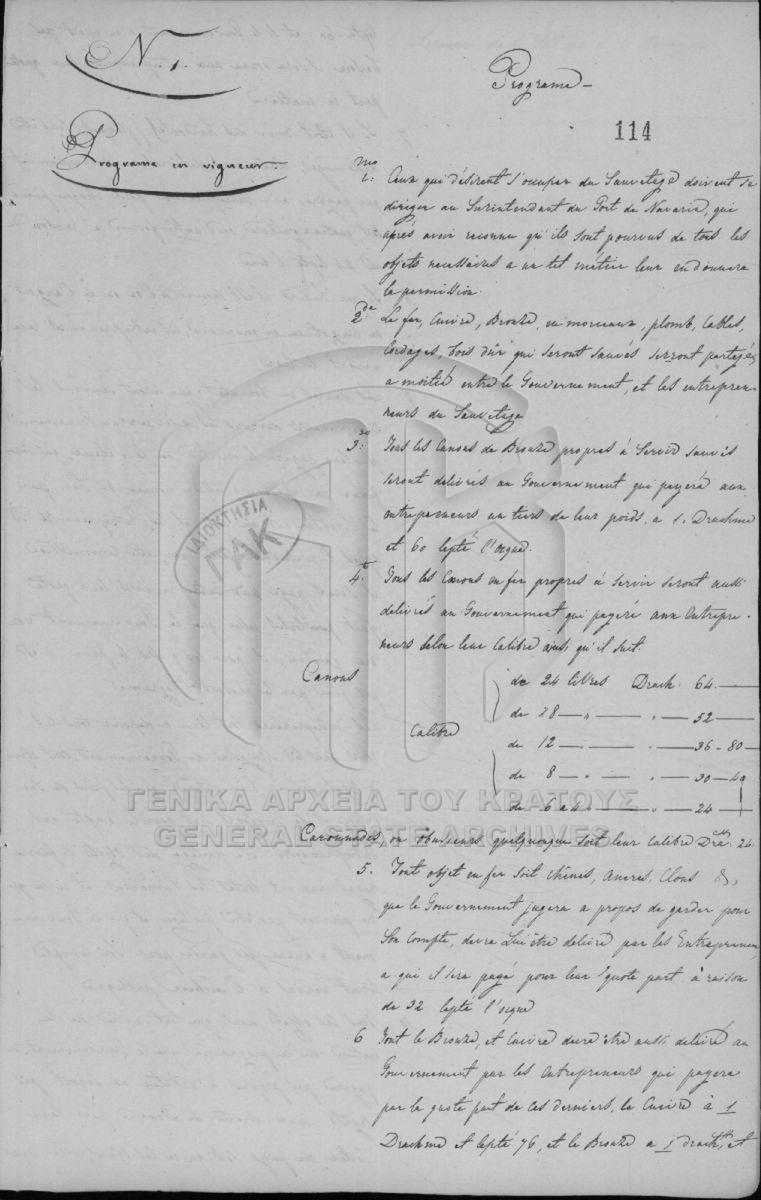 N 1.
Programa en vigueur.
Programe
114
1.mo Ceux qui désirent s'occuper du Sauvetage doivent se
diriger au Surintendant du Port de Navarin, qui
après avoir reconnu qu'ils sont pourvus de tous les
objets necessaires a un tel métier leur en donnera
la permission.
2.do Le fer, Cuivre, Bronze, en morceaux, plomb, Cables,
Cordages, bois dûr qui seront sauvés serront partagés
a moitié entre le Gouvernement, et les entrepren-
neurs du Sauvetage
3. Tous les Canons de Bronze propres à Servir sauvés
seront delivrés au Gouvernement qui payera aux
entrepreneurs un tiers de leur poids, a 1. Drachme
et 60 lepta l'ocque.
4.t Tous les Canons en fer propres à servir seront aussi
delivrés au Gouvernement qui payera aux Entrepre-
neurs selon leur Calibre ainsi qu'il suit.
Canons
Calibre
de 24 libres Drach. 64.—
de 18 — " — " — 52 —
de 12 — " — " — 36-80 —
de 8 — " — " — 30-40
de 6 a 4 " — " — 24 —
Caronnades, ou obusieurs quelquonque soit leur Calibre Dra. 24.
5. Tout objet en fer soit chênes, Ancres, Clous &,
que le Gouvernement jugera a propos de garder pour
Son Compte, devra Lui être delivré par les Entrepreneurs,
a qui il sera payé pour leur quote part à raison
de 32 lepta l'ocque
6 Tout le Bronze, et Cuivre devra être aussi delivré au
Gouvernement par les entrepreneurs qui payera
par la quote part de ces derniers, le Cuivre à 1
Drachme et lepta 76, et le Bronze a 1 drach., et
ΙΔΙΟΚΤΗΣΙΑ
ΓΑΚ
ΓΕΝΙΚΑ ΑΡΧΕΙΑ ΤΟΥ ΚΡΑΤΟΥΣ
GENERAL STATE ARCHIVES